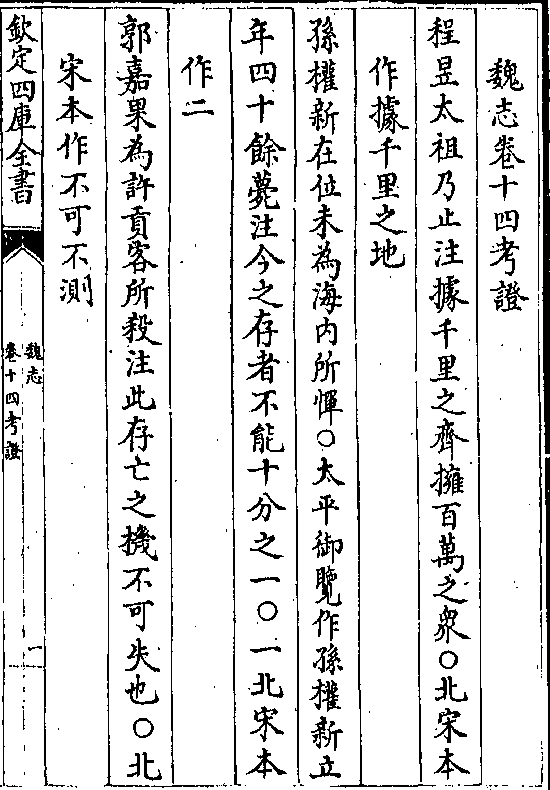 魏志卷十四考證
程昱太祖乃止注據千里之齊擁百萬之衆○北宋本
作據千里之地
孫權新在位未為海內所憚○太平御覽作孫權新立
年四十餘薨注今之存者不能十分之一○一北宋本
作二
郭嘉果為許貢客所殺注此存亡之機不可失也○北
宋本作不可不測
欽定四庫全書
魏志
卷十四考證
一